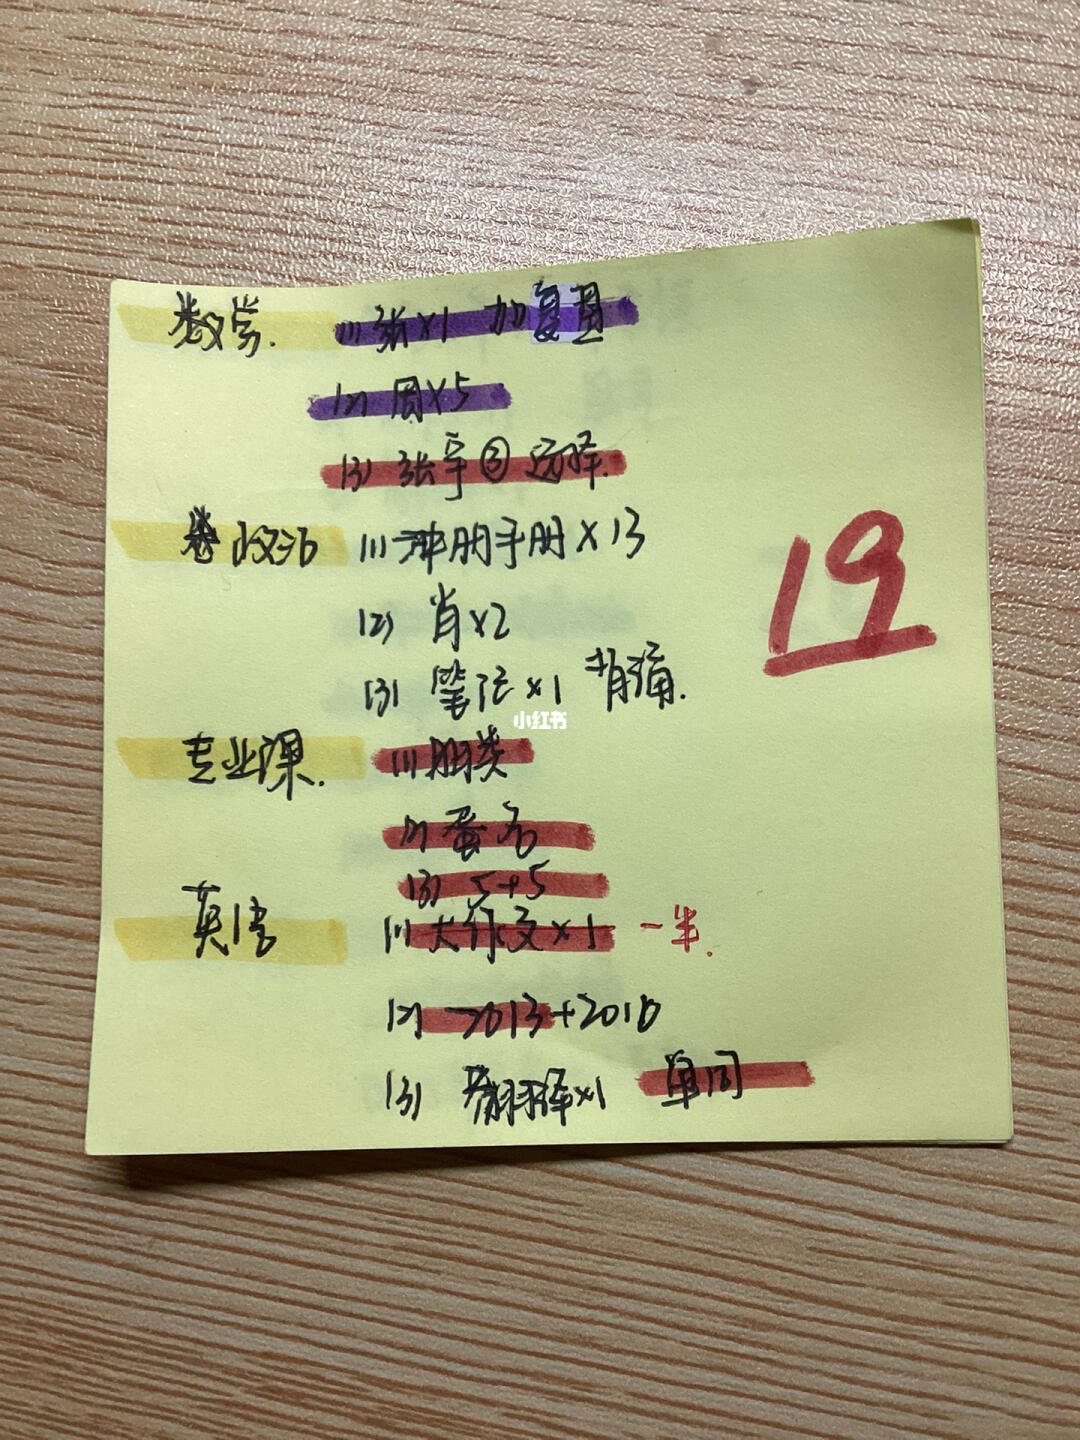 数学. (1) 张×1 加复盘
(2) 周×5
(3) 张宇③ 选择.
政治 (1) 冲刺手册×13
(2) 肖×2
(3) 笔记×1 背诵.
专业课. (1)
(2) 蛋白
(3) 5+5
英语 (1) 大作文×1 一半.
(2) 2013+2010
(3) 翻译×1 单词
19
小红书